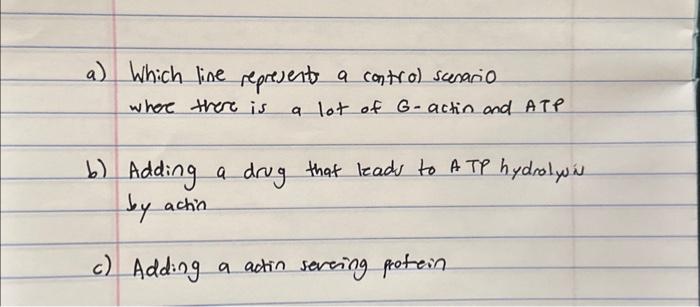 a) Which line represents a control scenario
where there is a lot of G-actin and ATP
b) Adding a drug that leads to ATP hydrolysis
by actin
c) Adding a actin severing protein